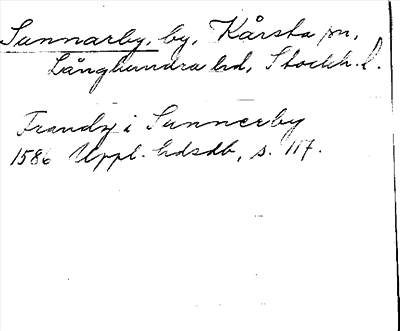 Sunnarby, by, Kårsta sn,
Långhundra hd, Stockh. l.
Frandz i Sunnerby
1586 Uppl. hdsdb, s. 117.